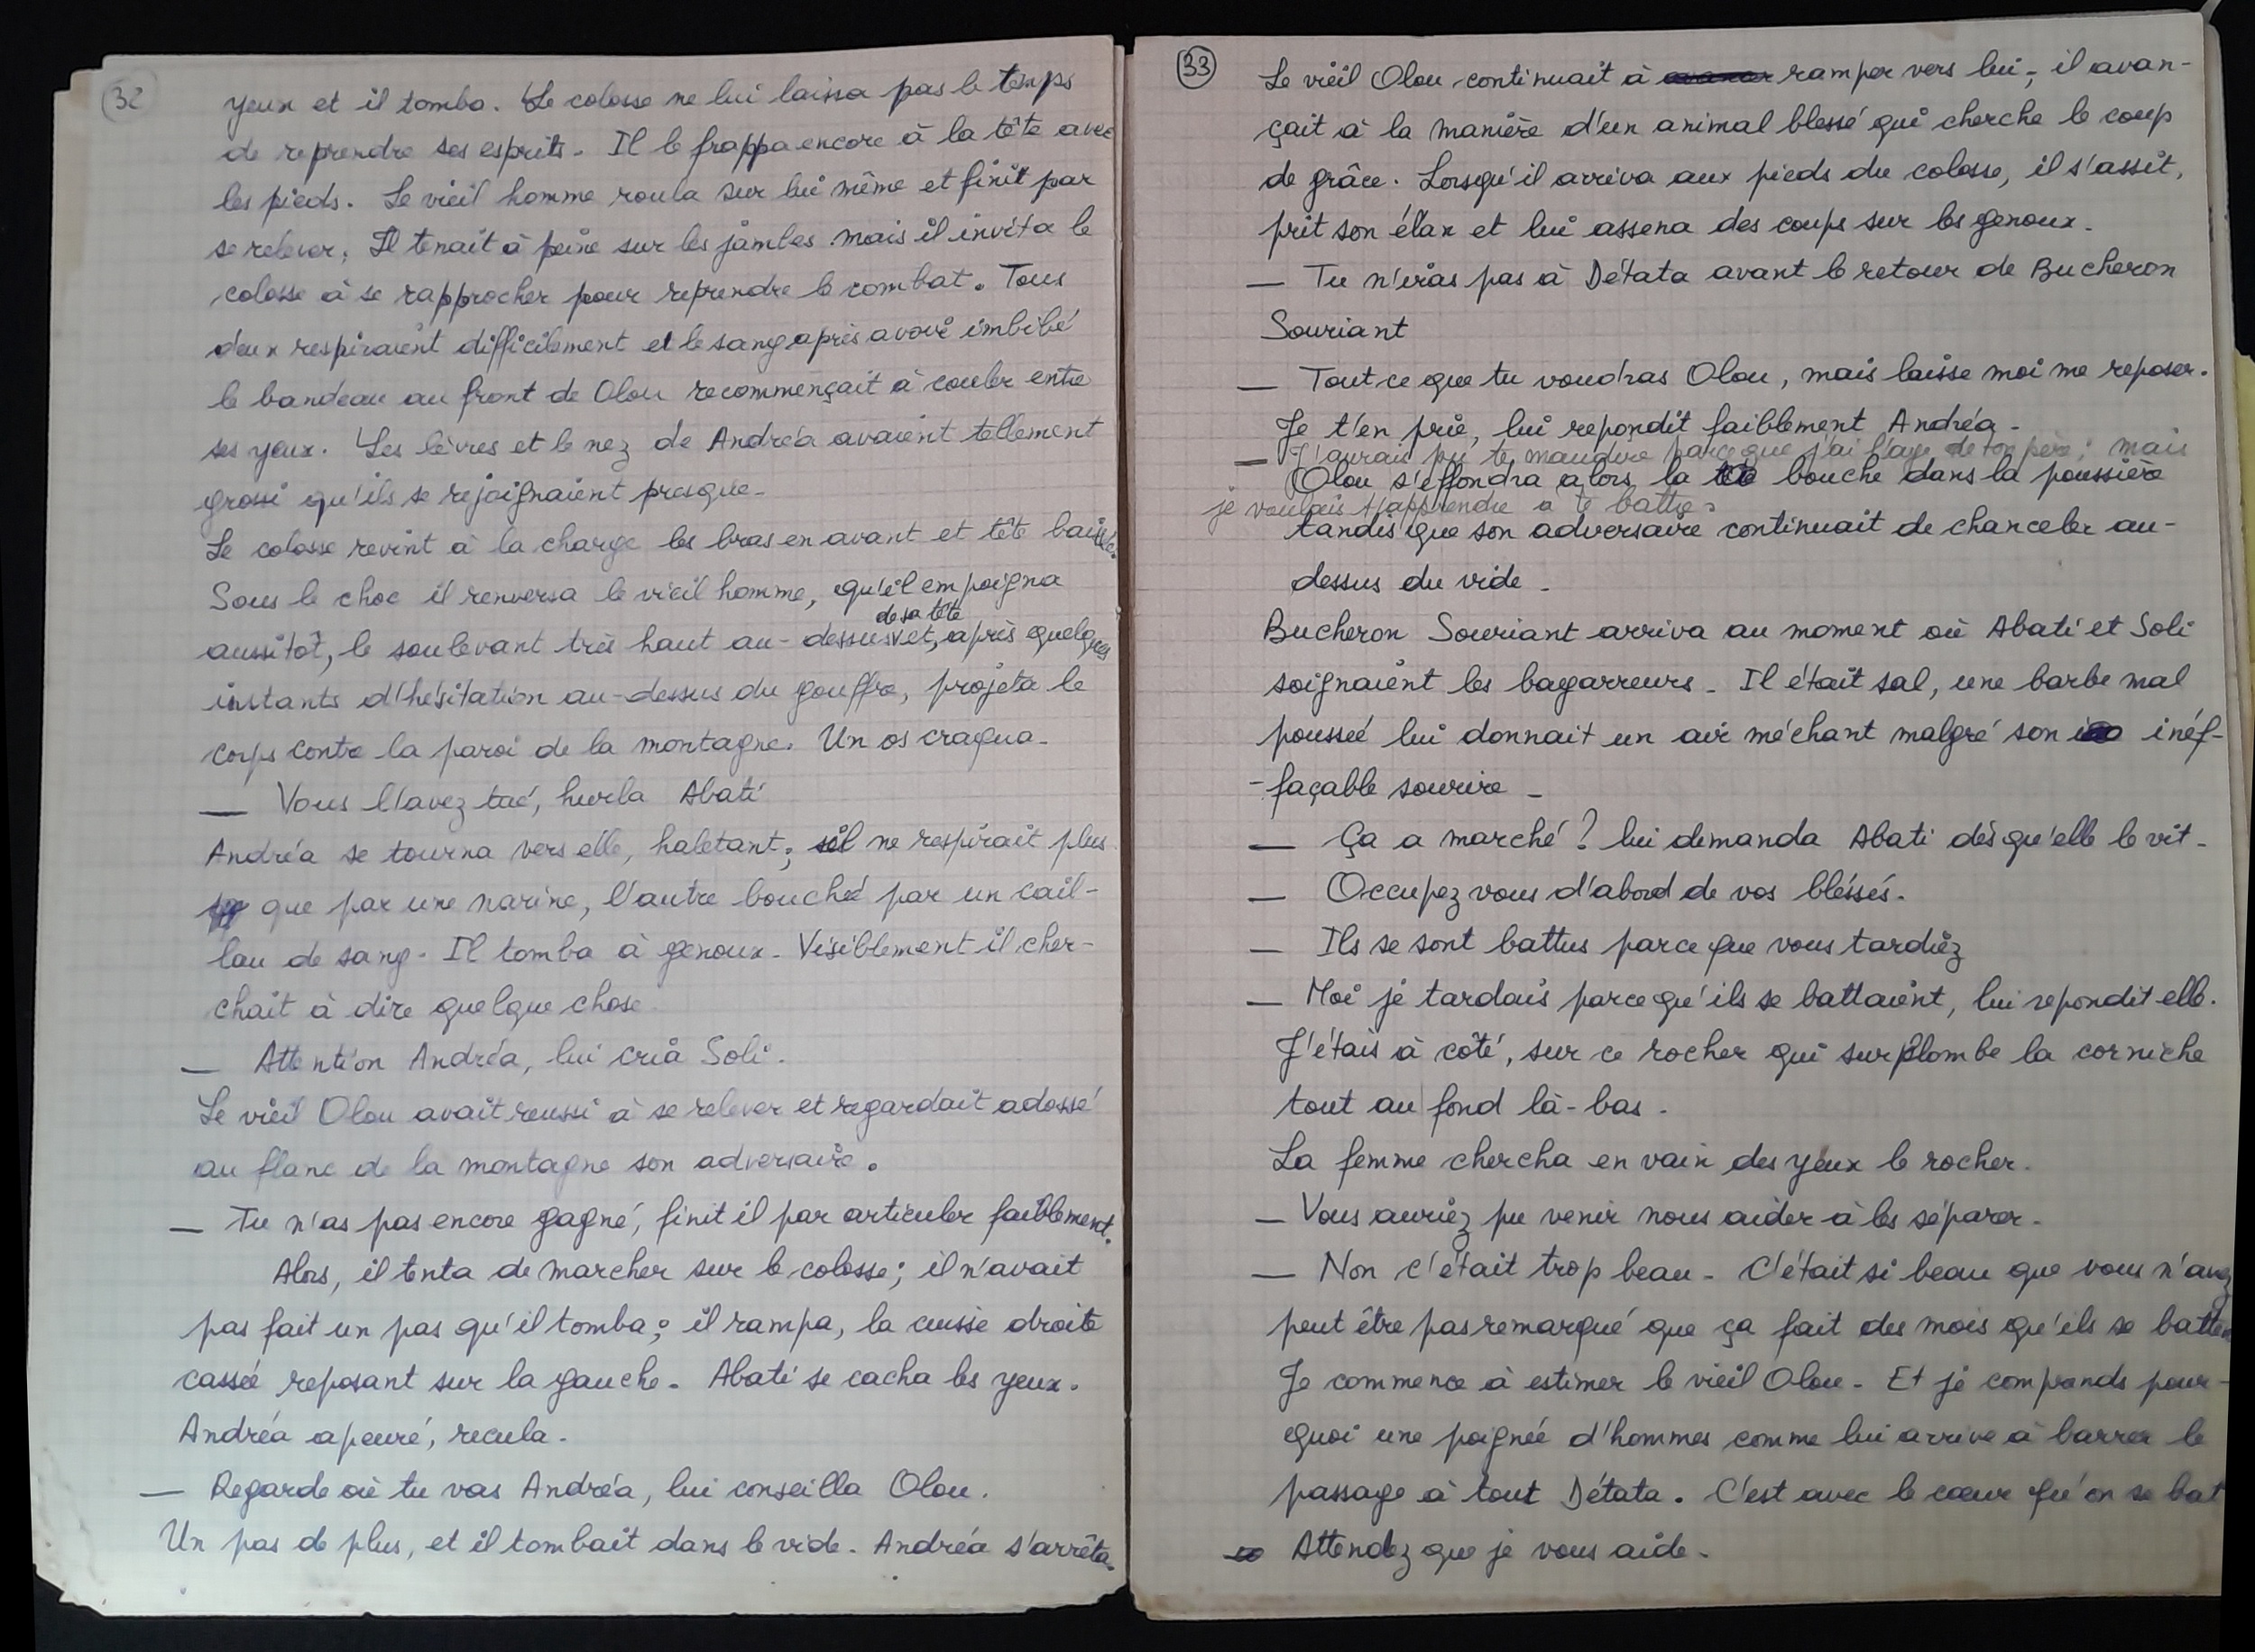 32
yeux et il tomba. Le colosse ne lui laissa pas le temps
de reprendre ses esprits. Il le frappa encore à la tête avec
les pieds. Le vieil homme roula sur lui même et finit par
se relever. Il tenait à peine sur les jambes mais il invita le
colosse à se rapprocher pour reprendre le combat. Tous
deux respiraient difficilement et le sang après avoir imbibé
le bandeau au front de Olou recommençait à couler entre
ses yeux. Les lèvres et le nez de Andréa avaient tellement
grossi qu'ils se rejoignaient presque.
Le colosse revint à la charge les bras en avant et tête baissée.
Sous le choc il renversa le vieil homme, qu'il empoigna
de sa tête
aussitôt, le soulevant très haut au-dessus et, après quelques
instants d'hésitation au-dessus du gouffre, projeta le
corps contre la paroi de la montagne. Un os craqua.
— Vous l'avez tué, hurla Abati
Andréa se tourna vers elle, haletant; il ne respirait plus
que par une narine, l'autre bouchée par un cail-
lau de sang. Il tomba à genoux. Visiblement il cher-
chait à dire quelque chose
— Attention Andréa, lui cria Soli.
Le vieil Olou avait reussi à se relever et regardait adossé
au flanc de la montagne son adversaire.
— Tu n'as pas encore gagné, finit il par articuler faiblement.
Alors, il tenta de marcher sur le colosse; il n'avait
pas fait un pas qu'il tomba; il rampa, la cuisse droite
cassée reposant sur la gauche. Abati se cacha les yeux.
Andréa apeuré, recula.
— Regarde où tu vas Andréa, lui conseilla Olou.
Un pas de plus, et il tombait dans le vide. Andréa s'arrêta.
33
Le vieil Olou continuait à ramper vers lui; il avan-
çait à la manière d'un animal blessé qui cherche le coup
de grâce. Lorsqu'il arriva aux pieds du colosse, il s'assit,
prit son élan et lui assena des coups sur les genoux.
— Tu n'iras pas à Détata avant le retour de Bucheron
Souriant
— Tout ce que tu voudras Olou, mais laisse moi me reposer.
Je t'en prie, lui repondit faiblement Andréa.
— J'aurais pu te maudire parce que j'ai l'age de ton père; mais
Olou s'effondra alors, la bouche dans la poussière
je voulais t'apprendre à te battre.
tandis que son adversaire continuait de chanceler au-
dessus du vide.
Bucheron Souriant arriva au moment où Abati et Soli
soignaient les bagarreurs. Il était sal, une barbe mal
poussée lui donnait un air méchant malgré son inéf-
-façable sourire.
— Ça a marché ? lui demanda Abati dès qu'elle le vit.
— Occupez vous d'abord de vos bléssés.
— Ils se sont battus parce que vous tardiez
— Moi je tardais parce qu'ils se battaient, lui repondit elle.
J'étais à côté, sur ce rocher qui surplombe la corniche
tout au fond là-bas.
La femme chercha en vain des yeux le rocher.
— Vous auriez pu venir nous aider à les séparer.
— Non c'était trop beau. C'était si beau que vous n'avez
peut être pas remarqué que ça fait des mois qu'ils se batten
Je commence à estimer le vieil Olou. Et je comprends pour-
quoi une poignée d'hommes comme lui arrive à barrer le
passage à tout Détata. C'est avec le cœur qu'on se bat
Attendez que je vous aide.